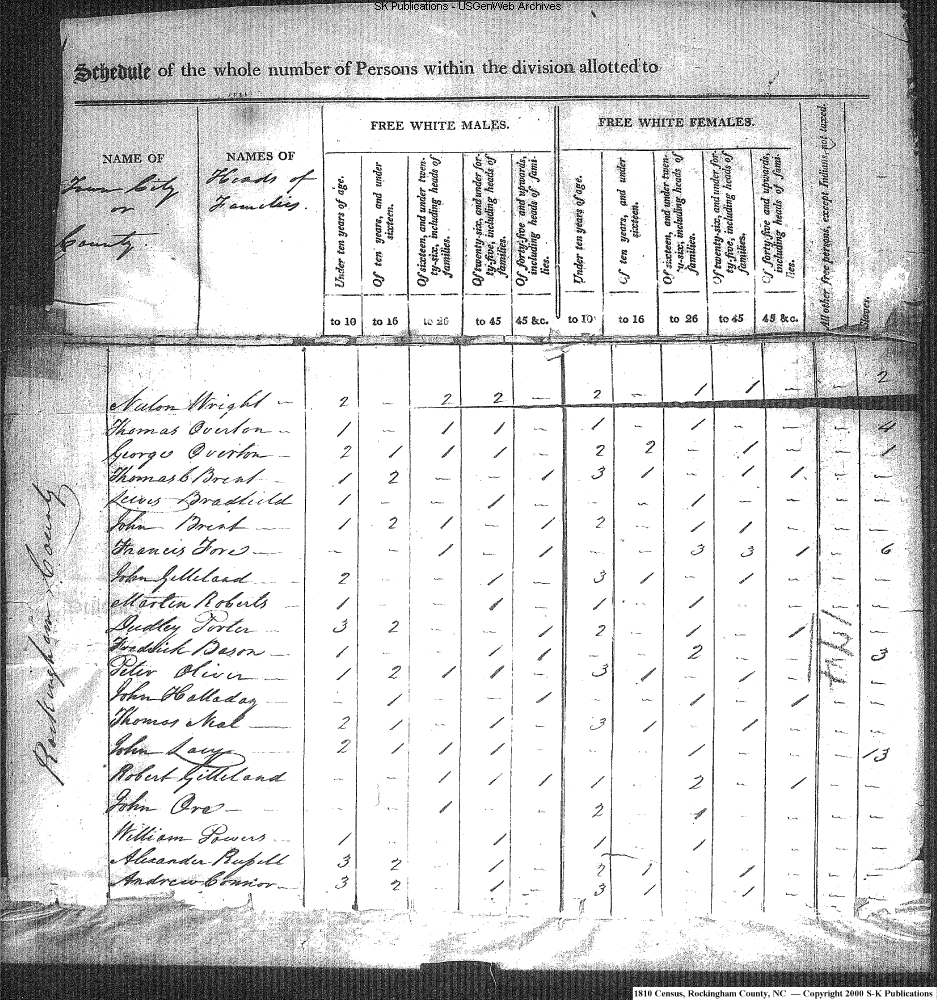 SK Publications - USGenWeb Archives
Schedule of the whole number of Persons within the division allotted to
NAME OF
Town City
or
County.
NAMES OF
Heads of
Families.
FREE WHITE MALES.
Under ten years of age.
Of ten years, and under sixteen.
Of sixteen, and under twenty-six, including heads of families.
Of twenty-six, and under forty-five, including heads of families.
Of forty-five and upwards, including heads of families.
FREE WHITE FEMALES.
Under ten years of age.
Of ten years, and under sixteen.
Of sixteen and under twenty-six, including heads of families.
Of twenty-six, and under forty-five, including heads of families.
Of forty-five and upwards, including heads of families.
All other free persons, except Indians, not taxed.
Slaves.
to 10 to 16 to 26 to 45 45 &c. to 10 to 16 to 26 to 45 45 &c.
Rockingham County
Wright – 2 - 2 2 – 2 - 1 1 – – 2
Thomas Overton – 1 - 1 1 – 1 - 1 – – – 4
George Overton – 2 1 1 1 – 2 2 – 1 – – 1
Thomas Brent – 1 2 – – 1 3 1 – 1 1 – –
Bradfield 1 – – 1 – – – 1 – – – –
John Brent – 1 2 1 – 1 2 – 1 1 – – –
Francis Fore – – – 1 – 1 – – 3 3 1 – 6
John Gilleland – 2 – – 1 – 3 1 – 1 – – –
Martin Roberts 1 – – 1 – 1 – 1 – – – –
Dudley Porter – 3 2 – – 1 2 – 1 – 1 – –
Fredrick Bason – 1 – – 1 1 – – 2 – – – 3
Peter Oliver – 1 2 1 1 – 3 1 – 1 – – –
John Halladay – 1 – – 1 – – 1 – 1 – –
Thomas Neal – 2 1 – 1 – 3 1 – 1 – – –
John Lacy 2 1 1 1 – – – 1 – – – 13
Robert Gilleland – – 1 1 1 1 – 2 – 1 – –
John Ore – – – 1 – – 2 – 1 – – – –
William Powers – 1 – – 1 – 1 – 1 – – – –
Alexander Russell 3 2 – 1 – 2 1 – 1 – – –
Andrew Connor – 3 2 – 1 – 3 1 – 1 – – –
1810 Census, Rockingham County, NC — Copyright 2000 S-K Publications